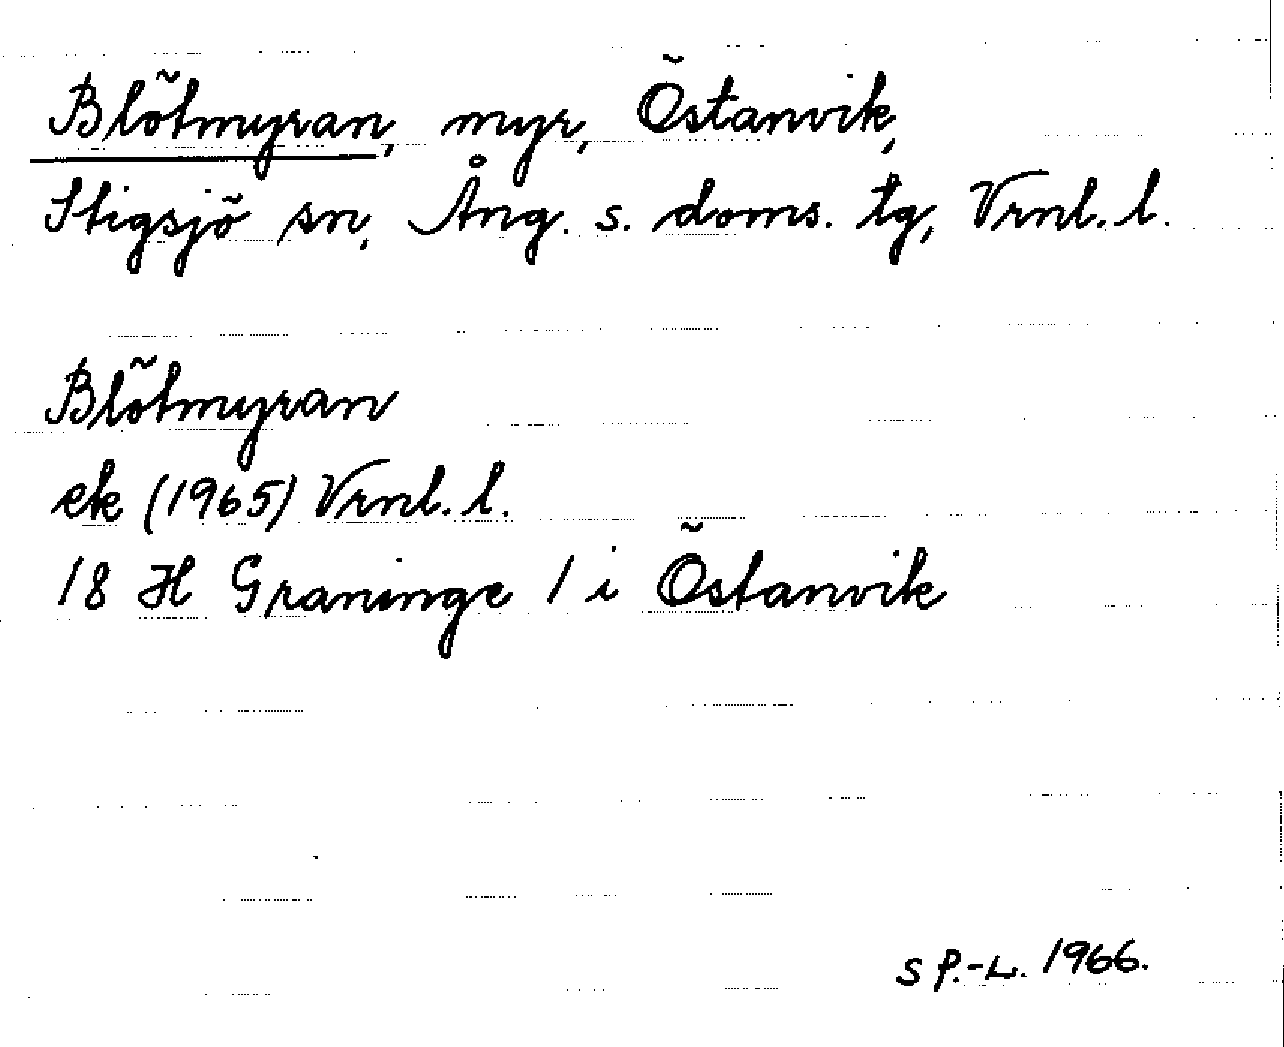 Blötmyran, myr, Östanvik,
Stigsjö sn, Ång. s. doms. tg, Vrnl. l.
Blötmyran
ek (1965) Vrnl. l.
18 H Graninge 1 i Östanvik
S P.-L. 1966.